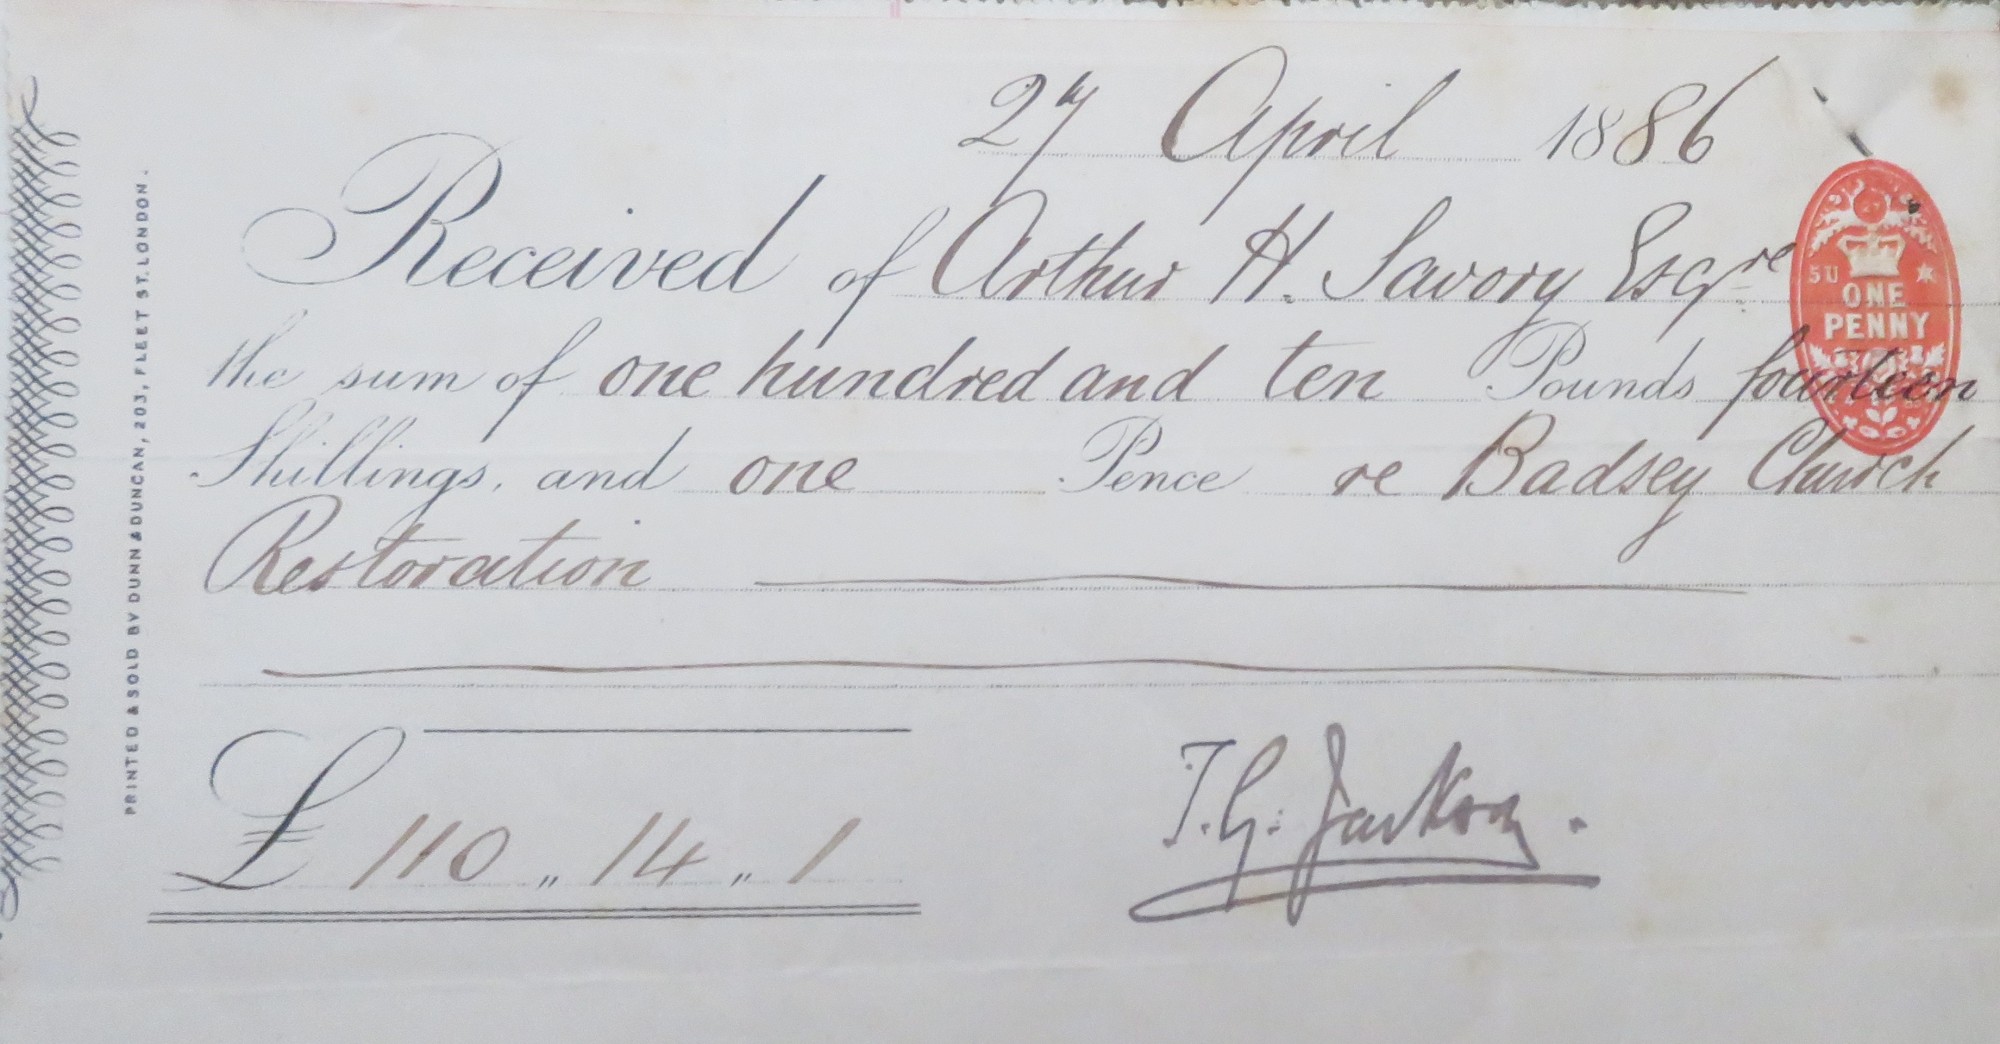 27 April 1886
Received of Arthur H. Savory Esqre
the sum of one hundred and ten Pounds fourteen
Shillings, and one Pence re Badsey Church
Restoration
£ 110 " 14 " 1
T. G. Jackson.
PRINTED & SOLD BY DUNN & DUNCAN, 203, FLEET ST. LONDON.
5U
ONE
PENNY